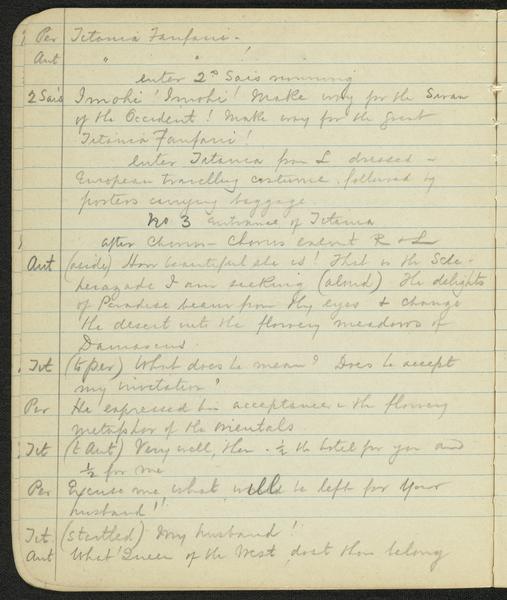 Per Titania Fanfani.
Ant " " !
enter 2nd Sais running
2 Sais Imohi! Imohi! Make way for the Swan
of the Occident! Make way for the great
Titania Fanfani!
enter Titania from L dressed in
European travelling costume. followed by
porters carrying baggage
No 3 Entrance of Titania
after Chorus - Chorus exeunt R & L
Ant (aside) How beautiful she is! That is the Sche-
herazade I am seeking (aloud) The delights
of Paradise beam from thy eyes & change
the desert into the flowery meadows of
Damascus.
Tit (to Per) What does he mean? Does he accept
my invitation?
Per He expressed his acceptance in the flowery
metaphor of the orientals
Tit (to Ant) Very well, then. ½ the hotel for you and
½ for me
Per Excuse me what will be left for your
husband!!
Tit (startled) My husband!
Ant What! Queen of the West, dost thou belong